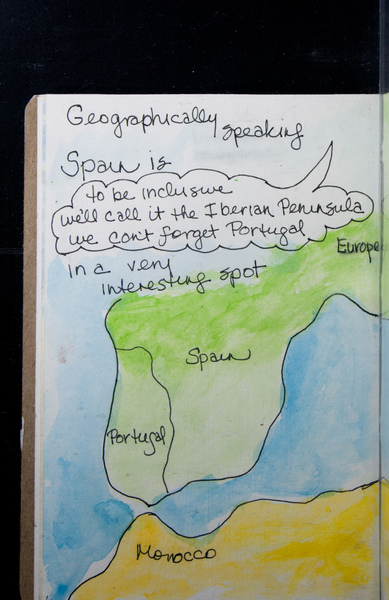 Geographically speaking
Spain is
to be inclusive
we'll call it the Iberian Peninsula
we can't forget Portugal
in a very
interesting spot
Europe
Spain
Portugal
Morocco